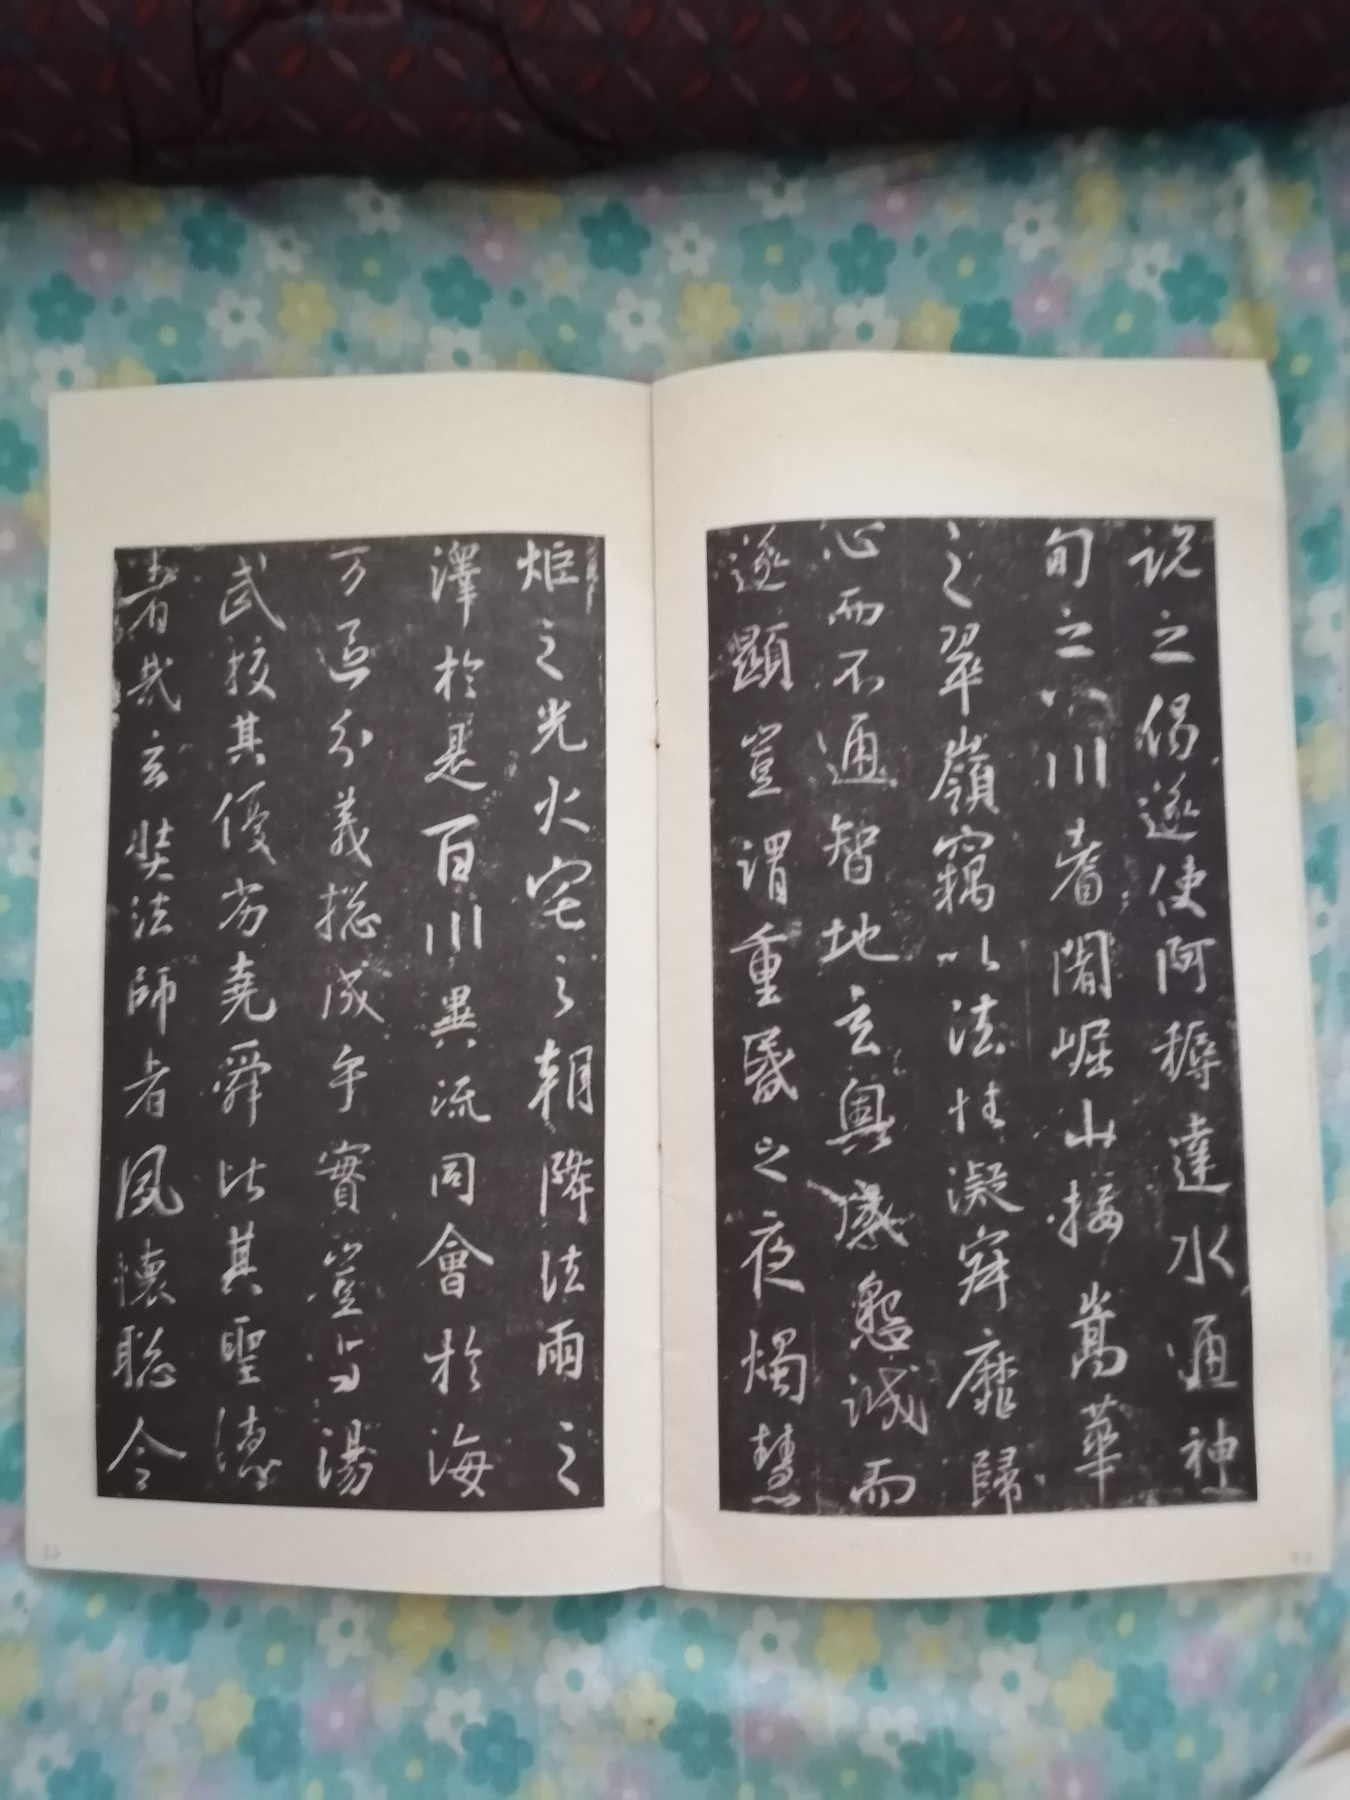 説之偈遂使阿耨達水通神
甸之八川耆闍崛山接嵩華
之翠嶺竊以法性凝寂靡歸
心而不通智地玄奧感懇誠而
遂顯豈謂重昏之夜燭慧
炬之光火宅之朝降法雨之
澤於是百川異流同會於海
万區分義揔成乎實豈与湯
武挍其優劣堯舜比其聖德
者哉玄奘法師者夙懷聡令
22
23